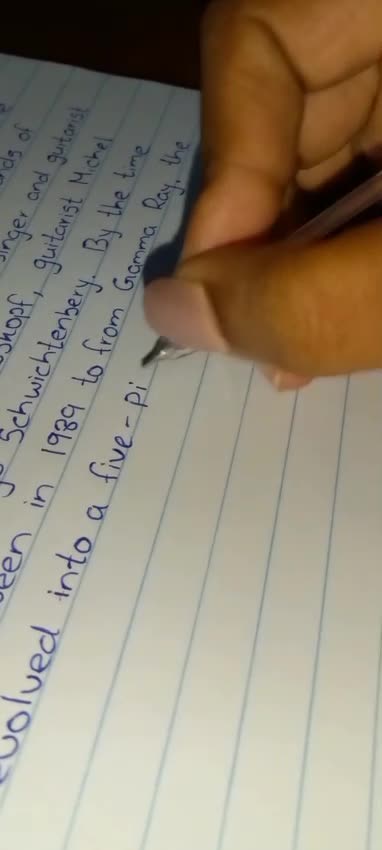 nds of
inger and guitarist
skopf, guitarist Michel
Schwichtenbery. By the time
een in 1989 to from Gamma Ray, the
evolved into a five-pi